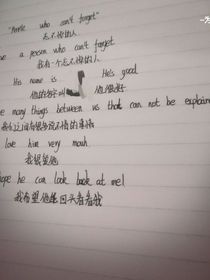 "People who can't forget"
忘不掉的人
a person who can't forget
我有一个忘不掉的人
His name is He's good
他的名字叫 他很好
many things between us that can not be explain
我们之间有很多说不清的事情
love him very much
我很爱他
hope he can look back at me!
我希望他能回头看看我